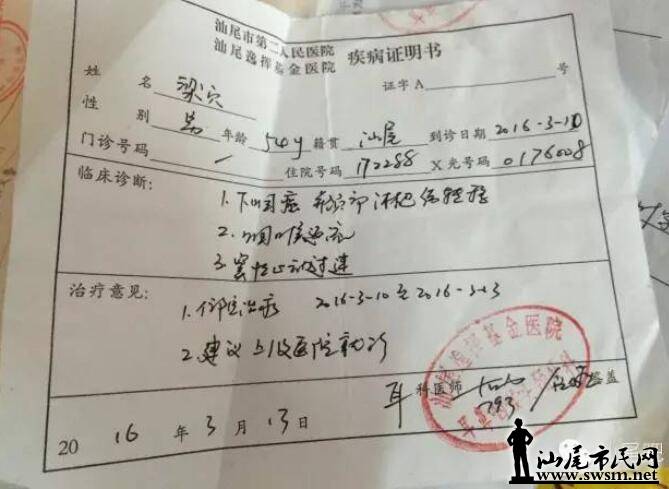 汕尾市第二人民医院
汕尾逸挥基金医院 疾病证明书
证字A 号
姓 名 梁
性 别 男 年龄 54y 籍贯 汕尾 到诊日期 2016-3-10
门诊号码 / 住院号码 172288 X光号码 0176008
临床诊断:
1.下咽癌 并颈部淋巴结转移
2.咽喉返流
3.窦性心动过速
治疗意见:
1.住院治疗 2016-3-10至2016-3-13
2.建议上级医院就诊
耳 科医师 盖
逸挥基金医院
2016年3月13日
汕尾市民网
www.swsm.net